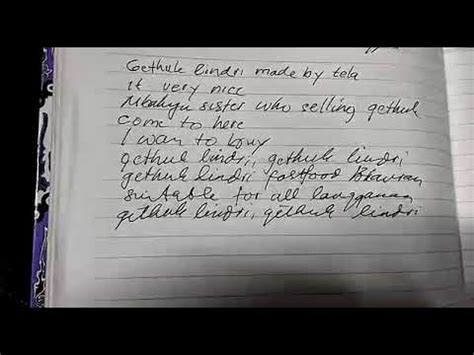 Gethuk lindri made by tela
it very nice
Mbakyu sister who selling gethuk
come to here
I wan to buy
gethuk lindri, gethuk lindri
gethuk lindri fastfood
suitable for all langganan
gethuk lindri, gethuk lindri